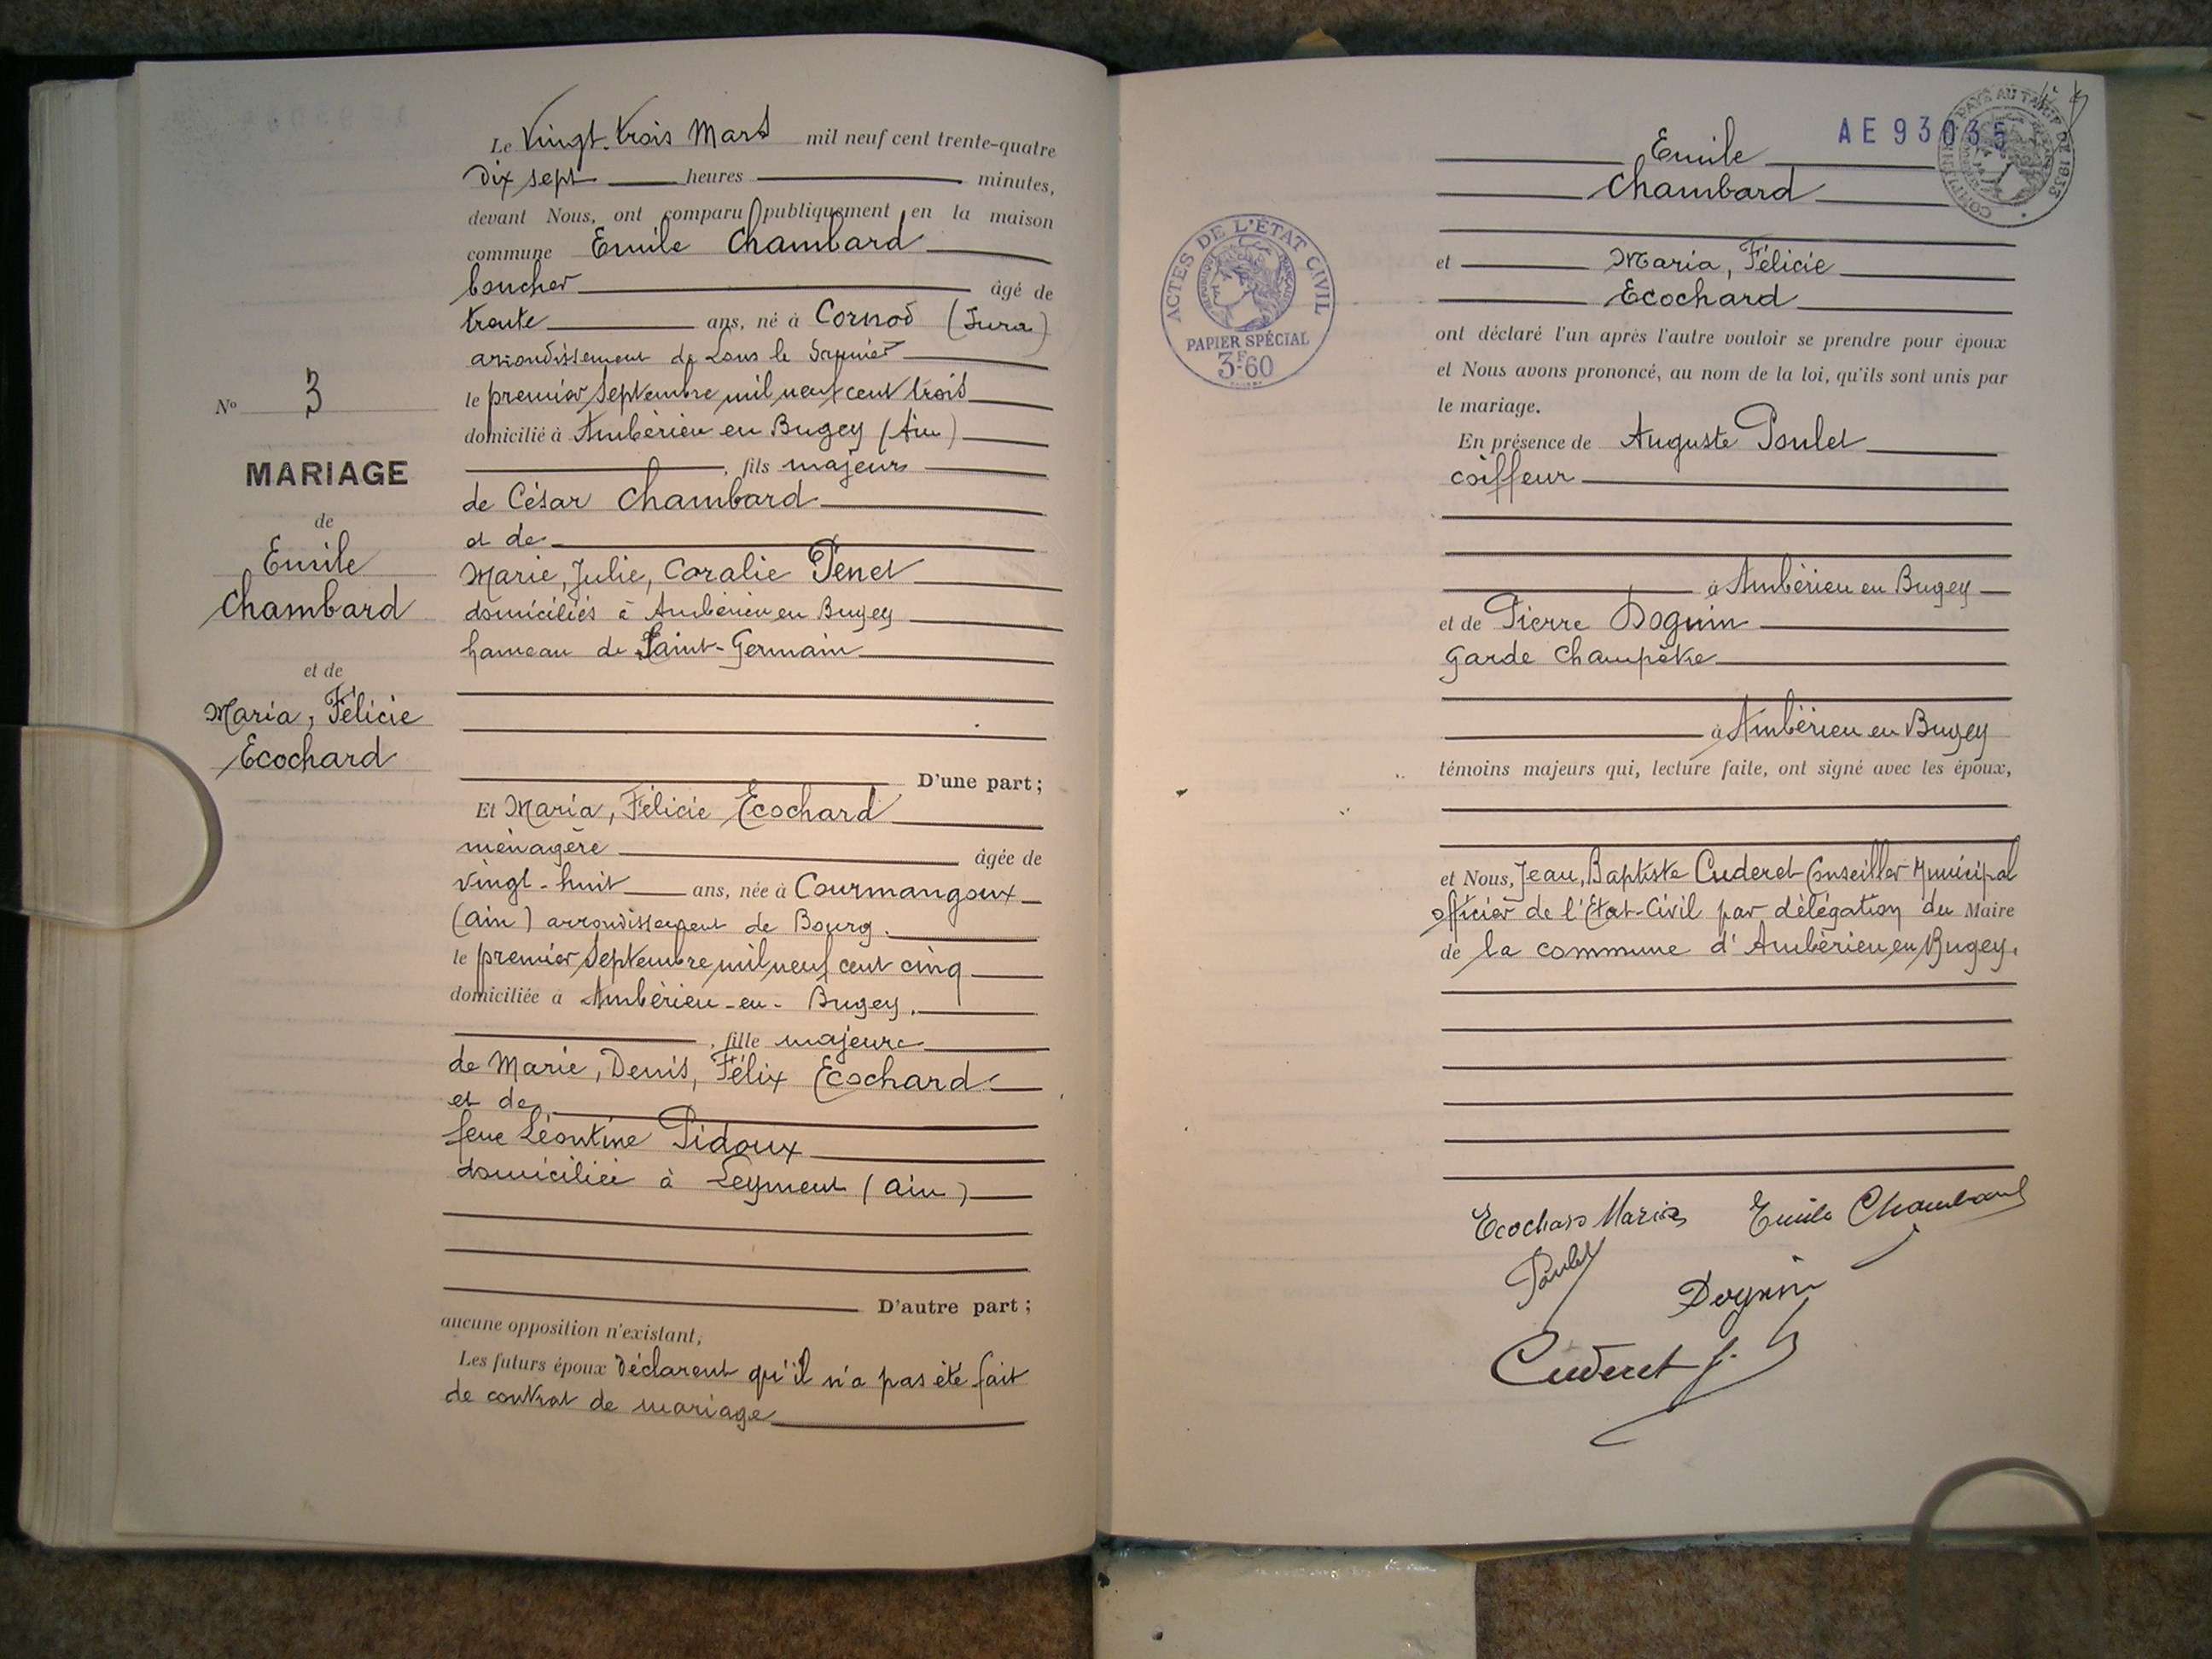 Le Vingt-trois Mars mil neuf cent trente-quatre
Dix sept heures minutes,
devant Nous, ont comparu publiquement en la maison
commune Emile Chambard
boucher âgé de
trente ans, né à Cornod (Jura)
arrondissement de Lons le Saunier
le premier Septembre mil neuf cent trois
domicilié à Ambérieu en Bugey (Ain)
, fils majeur
de César Chambard
et de
Marie, Julie, Coralie Penet
domiciliés à Ambérieu en Bugey
hameau de Saint-Germain
D'une part ;
No 3
MARIAGE
de
Emile
Chambard
et de
Maria, Félicie
Ecochard
Et Maria, Félicie Ecochard
ménagère âgée de
vingt-huit ans, née à Courmangoux
(ain) arrondissement de Bourg.
le premier Septembre mil neuf cent cinq
domiciliée à Ambérieu-en-Bugey.
, fille majeure
de Marie, Denis, Félix Ecochard
et de
feue Léontine Pidoux
domiciliée à Leyment (ain)
D'autre part ;
aucune opposition n'existant,
Les futurs époux Déclarent qu'il n'a pas été fait
de contrat de mariage
AE 93035
PAYÉ AU TARIF DE 1933
Emile
Chambard
et Maria, Félicie
Ecochard
ACTES DE L'ÉTAT CIVIL
RÉPUBLIQUE FRANÇAISE
PAPIER SPÉCIAL
3F60
ont déclaré l'un après l'autre vouloir se prendre pour époux
et Nous avons prononcé, au nom de la loi, qu'ils sont unis par
le mariage.
En présence de Auguste Poulet
coiffeur
à Ambérieu en Bugey
et de Pierre Doguin
Garde Champêtre
à Ambérieu en Bugey
témoins majeurs qui, lecture faite, ont signé avec les époux,
et Nous, Jean, Baptiste Cuderet Conseiller Municipal
officier de l'Etat-Civil par délégation du Maire
de la commune d'Ambérieu en Bugey.
Ecochard Maria Emile Chambard
Poulet
Doguin
Cuderet J.